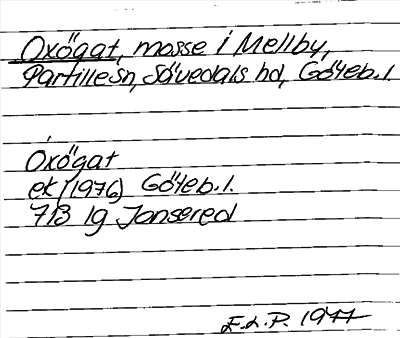 Oxögat, mosse i Mellby,
Partille sn, Sävedals hd, Göteb. l.
Óxögat
ek (1976) Göteb. l.
7B 1g Jonsered
E.L.P. 1977